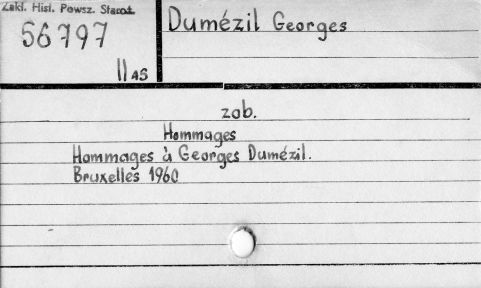 Zakł. Hist. Powsz. Staroż.
56797
II 45
Dumézil Georges
zob.
Hommages
Hommages à Georges Dumézil.
Bruxelles 1960